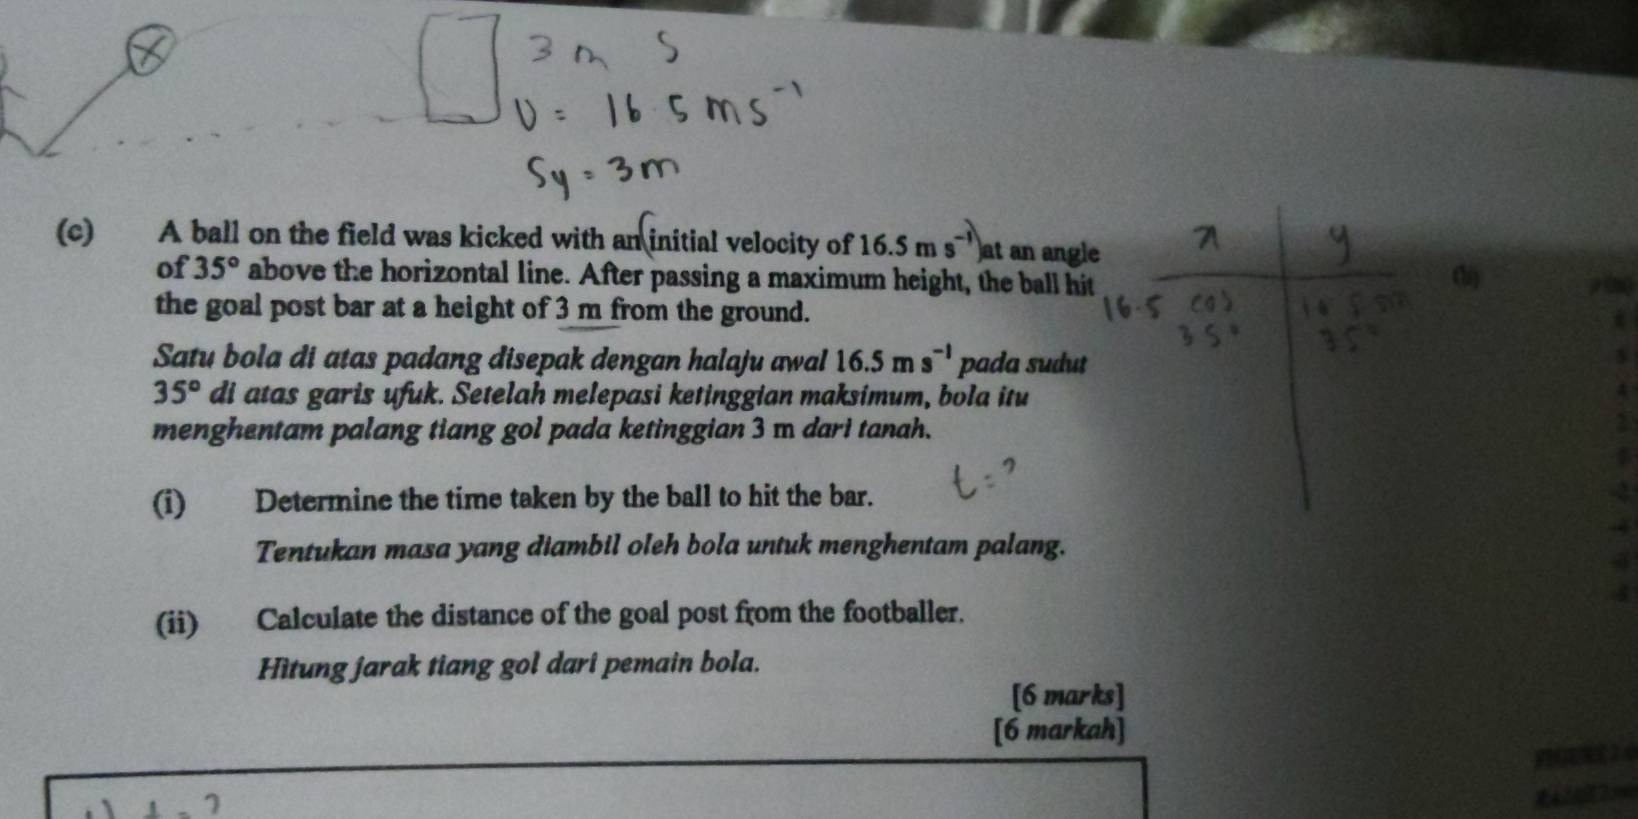 3 m S
U = 16.5 ms⁻¹
Sy = 3m
(c) A ball on the field was kicked with an initial velocity of 16.5 m s⁻¹ at an angle
of 35° above the horizontal line. After passing a maximum height, the ball hit
the goal post bar at a height of 3 m from the ground.
x y
16.5 cos
35° 35°
Satu bola di atas padang disepak dengan halaju awal 16.5 m s⁻¹ pada sudut
35° di atas garis ufuk. Setelah melepasi ketinggian maksimum, bola itu
menghentam palang tiang gol pada ketinggian 3 m dari tanah.
t = ?
(i) Determine the time taken by the ball to hit the bar.
Tentukan masa yang diambil oleh bola untuk menghentam palang.
(ii) Calculate the distance of the goal post from the footballer.
Hitung jarak tiang gol dari pemain bola.
[6 marks]
[6 markah]
t = ?